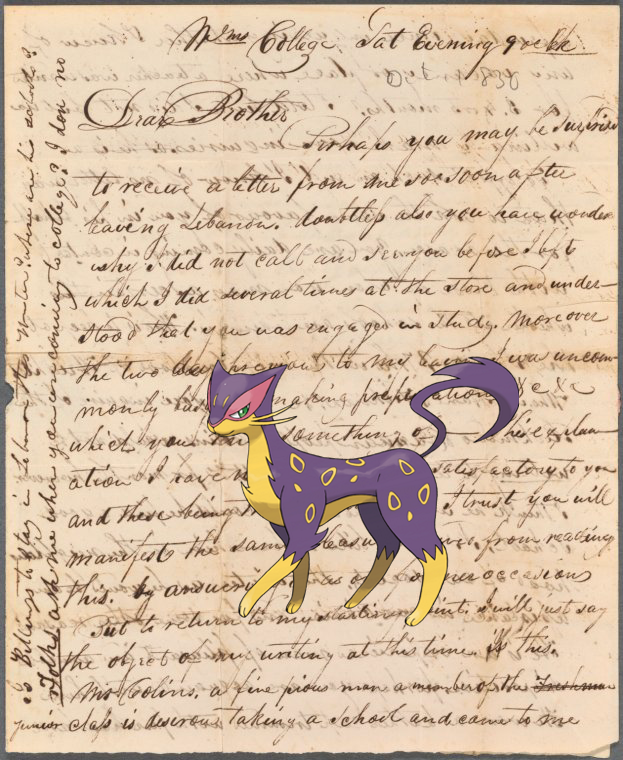 Wms College, Sat Evening 9 oclk
Oct 1838
Dear Brother
Perhaps you may be surprise
to receive a letter from me so soon after
leaving Lebanon. doubtless also you have wonder
why I did not call and see you before I left
which I did several times at the store and under-
stood that you was engaged in study. Moreover
the two previous to my I was uncom-
monly making preparations &c &c
which you something of
ation I have satisfactory to you
and these being I trust you will
manifest the same from reading
this. by as on former occasions
But to return to my starting point. I will just say
the object of my writing at this time is this.
Mr Colins. a fine pious man a member of the Freshman
junior class is desirous taking a school and came to me
Is Billings to stay in Lebanon this Winter? where are his schools?
Folks ask me when you are coming to college? I don no